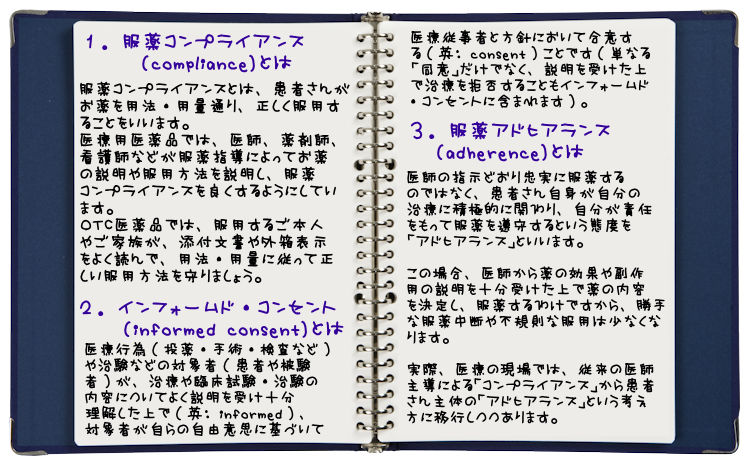 １．服薬コンプライアンス
(compliance)とは
服薬コンプライアンスとは、患者さんが
お薬を用法・用量通り、正しく服用す
ることをいいます。
医療用医薬品では、医師、薬剤師、
看護師などが服薬指導によってお薬
の説明や服用方法を説明し、服薬
コンプライアンスを良くするようにしてい
ます。
OTC医薬品では、服用するご本人
やご家族が、添付文書や外箱表示
をよく読んで、用法・用量に従って正
しい服用方法を守りましょう。
２．インフォームド・コンセント
(informed consent)とは
医療行為(投薬・手術・検査など)
や治験などの対象者(患者や被験
者)が、治療や臨床試験・治験の
内容についてよく説明を受け十分
理解した上で(英: informed)、
対象者が自らの自由意思に基づいて
医療従事者と方針において合意す
る(英: consent)ことです(単なる
「同意」だけでなく、説明を受けた上
で治療を拒否することもインフォームド
・コンセントに含まれます)。
３．服薬アドヒアランス
(adherence)とは
医師の指示どおり忠実に服薬する
のではなく、患者さん自身が自分の
治療に積極的に関わり、自分が責任
をもって服薬を遵守するという態度を
「アドヒアランス」といいます。
この場合、医師から薬の効果や副作
用の説明を十分受けた上で薬の内容
を決定し、服薬するわけですから、勝手
な服薬中断や不規則な服用は少なくな
ります。
実際、医療の現場では、従来の医師
主導による「コンプライアンス」から患者
さん主体の「アドヒアランス」という考え
方に移行しつつあります。